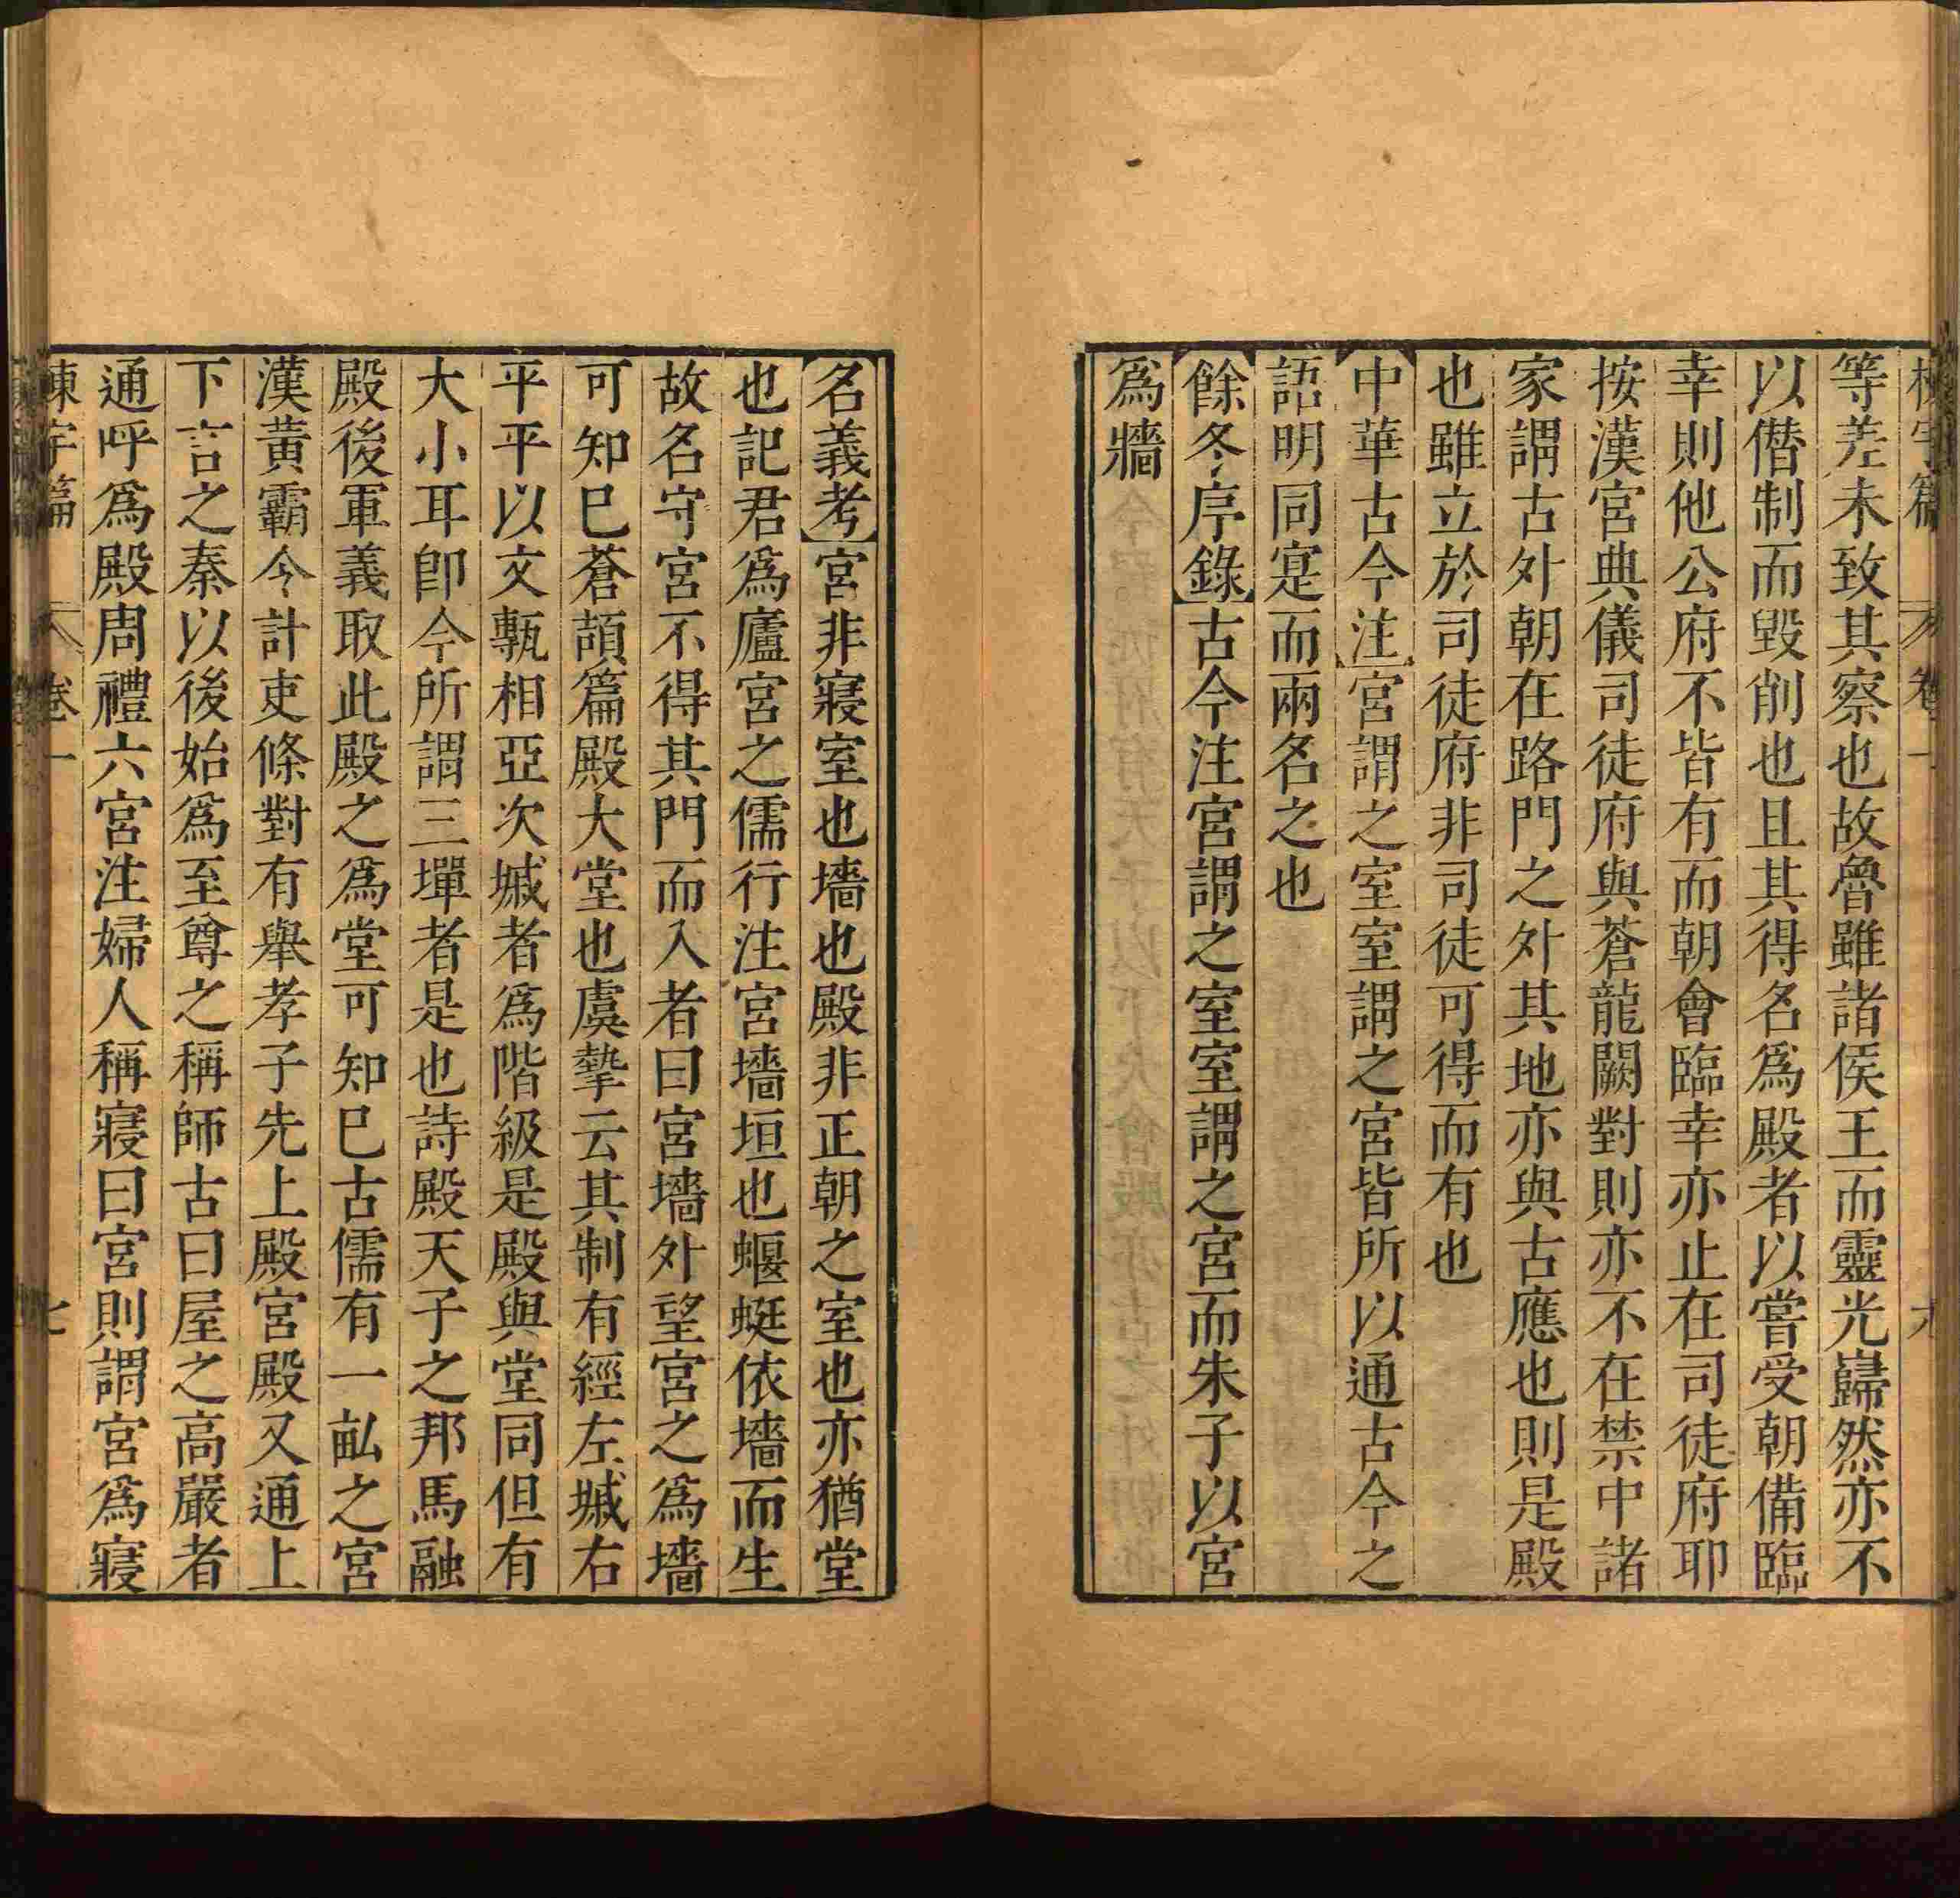 棟宇篇 卷一 六
等差未致其察也故魯雖諸侯王而靈光巋然亦不
以僭制而毀削也且其得名為殿者以嘗受朝備臨
幸則他公府不皆有而朝會臨幸亦止在司徒府耶
按漢宮典儀司徒府與蒼龍闕對則亦不在禁中諸
家謂古外朝在路門之外其地亦與古應也則是殿
也雖立於司徒府非司徒可得而有也
【中華古今注】宮謂之室室謂之宮皆所以通古今之
語明同寔而兩名之也
【餘冬序錄】古今注宮謂之室室謂之宮而朱子以宮
為牆
【名義考】宮非寢室也墻也殿非正朝之室也亦猶堂
也記君為廬宮之儒行注宮墻垣也蝘蜓依墻而生
故名守宮不得其門而入者曰宮墻外望宮之為墻
可知巳蒼頡篇殿大堂也虞摯云其制有經左墄右
平平以文甎相亞次墄者為階級是殿與堂同但有
大小耳卽今所謂三墠者是也詩殿天子之邦馬融
殿後軍義取此殿之為堂可知巳古儒有一畝之宮
漢黃霸令計吏條對有舉孝子先上殿宮殿又通上
下言之秦以後始為至尊之稱師古曰屋之高嚴者
通呼為殿周禮六宮注婦人稱寢曰宮則謂宮為寢
棟宇篇 卷一 七